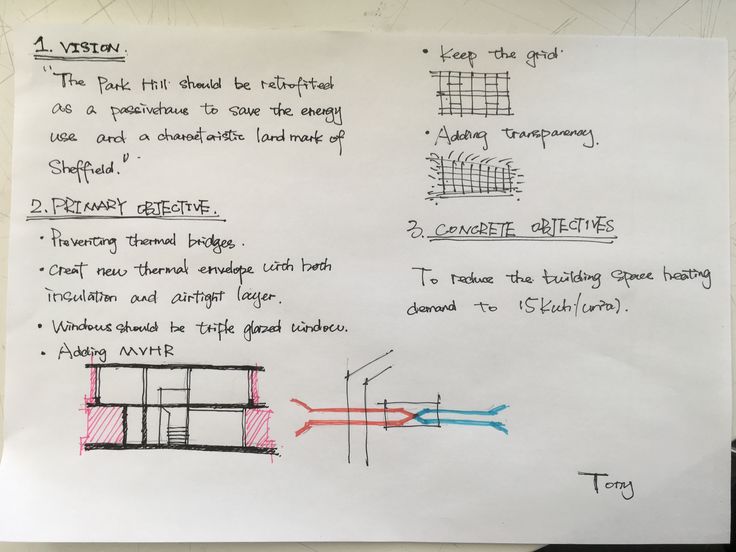 1. VISION.
"The Park Hill should be retrofited
as a passivehaus to save the energy
use and a charactaristic land mark of
Sheffield."
2. PRIMARY OBJECTIVE.
· Preventing thermal bridges.
· Creat new thermal envelope with both
insulation and airtight layer.
· Windows should be triple glazed window.
· Adding MVHR
· Keep the grid.
· Adding transparency.
3. CONCRETE OBJECTIVES
To reduce the building space heating
demand to 15
Tony